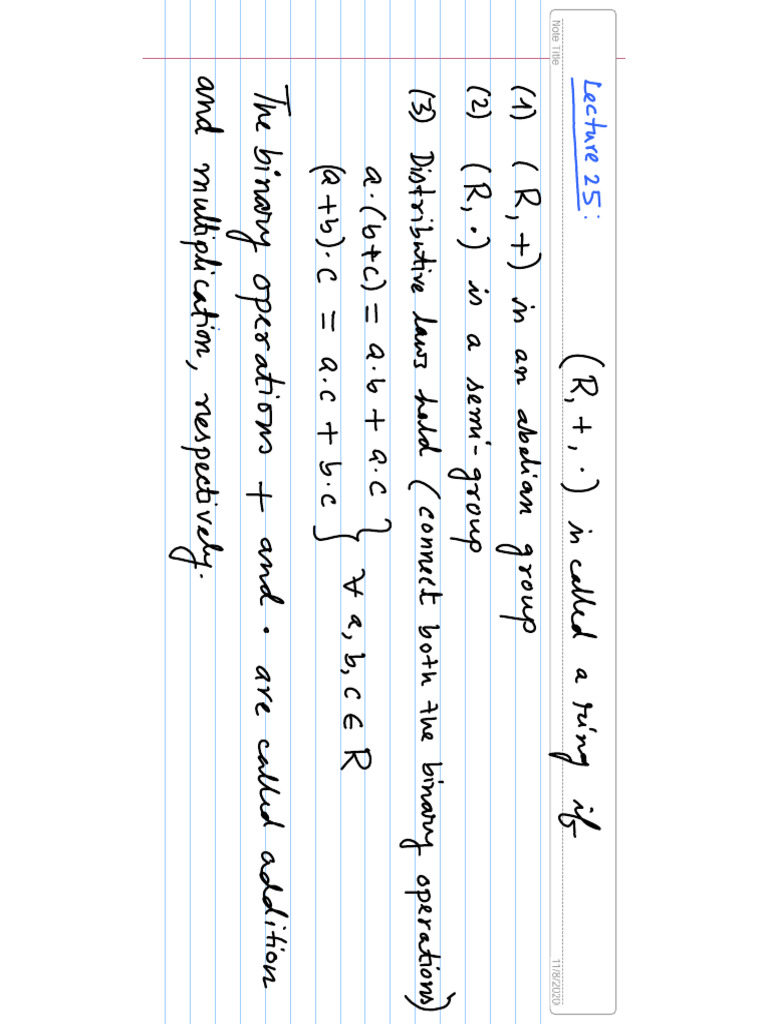 Note Title
11/8/2020
Lecture 25:
(R, +, ·) is called a ring if
(1) (R, +) is an abelian group
(2) (R, ·) is a semi-group
(3) Distributive laws hold (connect both the binary operations)
a·(b+c) = a·b + a·c
(a+b)·c = a·c + b·c } ∀ a, b, c ∈ R
The binary operations + and · are called addition
and multiplication, respectively.